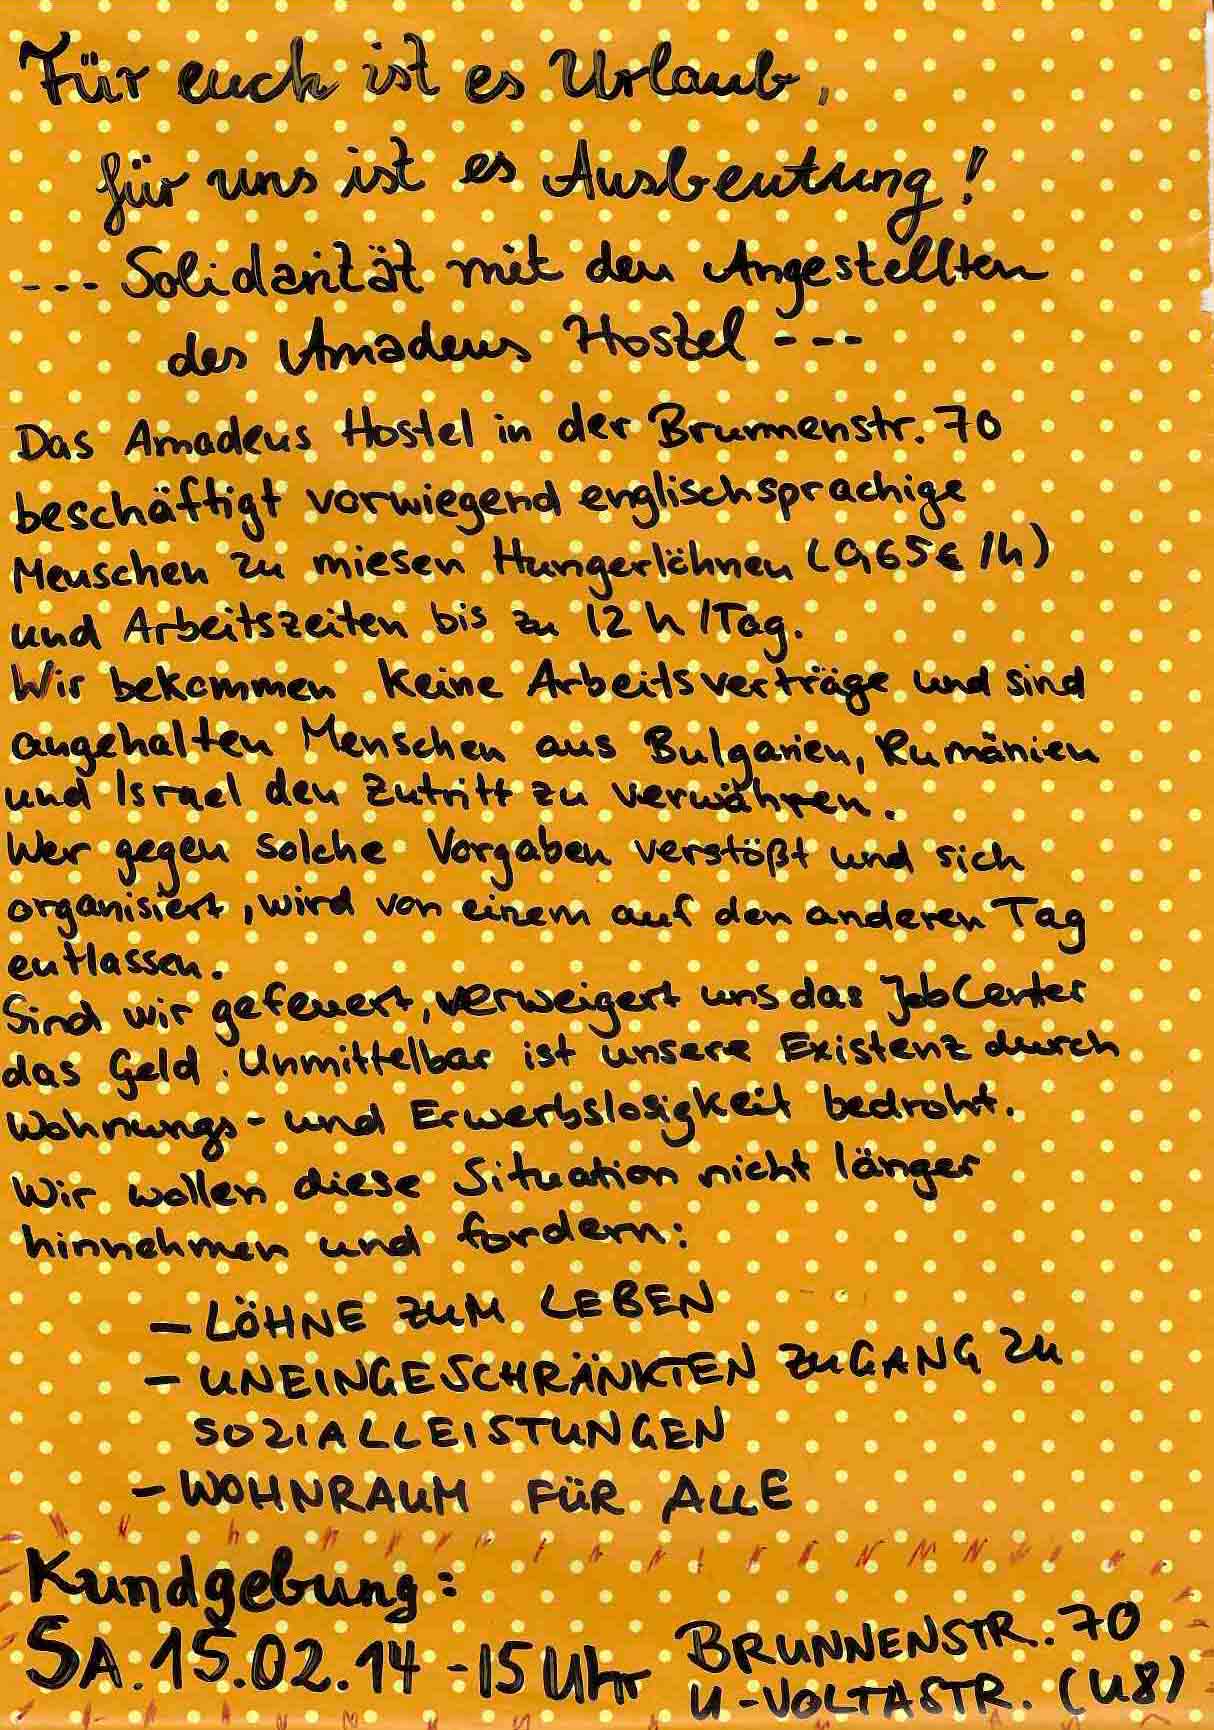 Für euch ist es Urlaub,
für uns ist es Ausbeutung!
--- Solidarität mit den Angestellten
des Amadeus Hostel ---
Das Amadeus Hostel in der Brunnenstr. 70
beschäftigt vorwiegend englischsprachige
Menschen zu miesen Hungerlöhnen (0,65€/h)
und Arbeitszeiten bis zu 12h/Tag.
Wir bekommen keine Arbeitsverträge und sind
angehalten Menschen aus Bulgarien, Rumänien
und Israel den Zutritt zu verwähren.
Wer gegen solche Vorgaben verstößt und sich
organisiert, wird von einem auf den anderen Tag
entlassen.
Sind wir gefeuert, verweigert uns das JobCenter
das Geld. Unmittelbar ist unsere Existenz durch
Wohnungs- und Erwerbslosigkeit bedroht.
Wir wollen diese Situation nicht länger
hinnehmen und fordern:
- LÖHNE ZUM LEBEN
- UNEINGESCHRÄNKTEN ZUGANG ZU
SOZIALLEISTUNGEN
- WOHNRAUM FÜR ALLE
Kundgebung:
SA. 15.02.14 - 15 Uhr
BRUNNENSTR. 70
U-VOLTASTR. (U8)